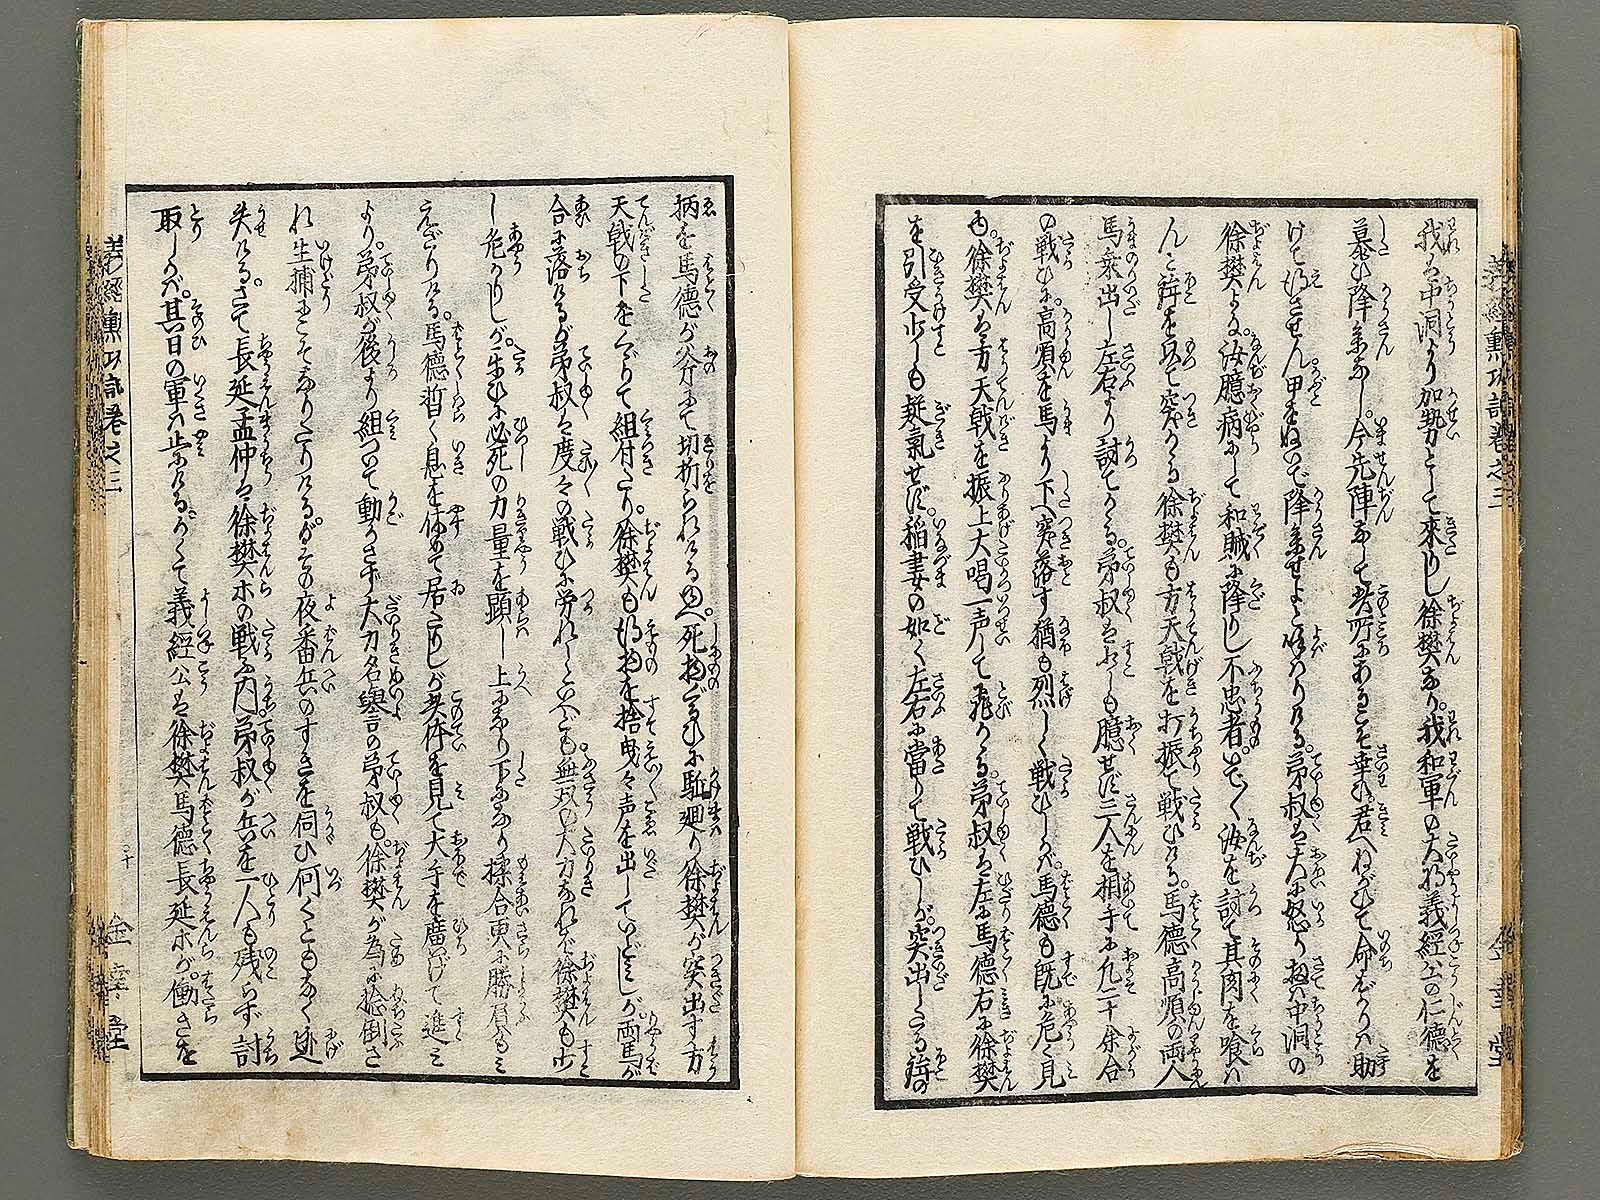 我は中洞より加勢として來りし徐樊なり。我和軍の大将義經公の仁徳を
慕ひ降参なし。今先陣なして此所にあるこそ幸ひ君へねがひて命ばかりは助
けて得させん甲をぬいで降参せよと呼はりける。弟叔は大に怒り扨は中洞の
徐樊よな。汝臆病にして和賊に降りし不忠者。いで〳〵汝を討て其肉を喰は
んと鉾を以て突かゝる徐樊も方天戟を打振て戦ひける。馬徳高順の両人
馬乗出し左右より討てかゝる。弟叔は少しも臆せず三人を相手に凡二十余合
の戦ひに。高順を馬より下へ突落す猶も烈しく戦ひしかば。馬徳も既に危く見
も。徐樊は方天戟を振上大喝一声して飛かゝる。弟叔は左に馬徳右に徐樊
を引受少しも疑氣せず。稲妻の如く左右に當りて戦ひしが。突出したる鉾の
柄を馬徳が斧にて切折られけるゆへ。死物ぐるひに駈廻り徐樊が突出す方
天戟の下をくゞりて組付たり。徐樊も得物を捨曳々声を出していどみしが。両馬が
合に落けるが弟叔は度々の戦ひに労れしといへども無双の大力なれば徐樊も少
し危かりしが。互ひに必死の力量を顕し上になり下になり揉合更に勝負もみ
えざりける。馬徳暫く息を休めて居たりしが此体を見て大手を廣げて進み
より。弟叔が後より組ついて動かさず大力名誉の弟叔も。徐樊が為に捻倒さ
れ生捕にこそなりたりけるが。その夜番兵のすきを伺ひ何くともなく逃
失ける。さて長延孟仲は徐樊ホの戦ふ内弟叔が兵を一人も残らず討
取しかば。其日の軍は止にける。かくて義經公は徐樊馬徳長延ホが。働きを
義經勲功記巻之三
義經勲功記巻之三